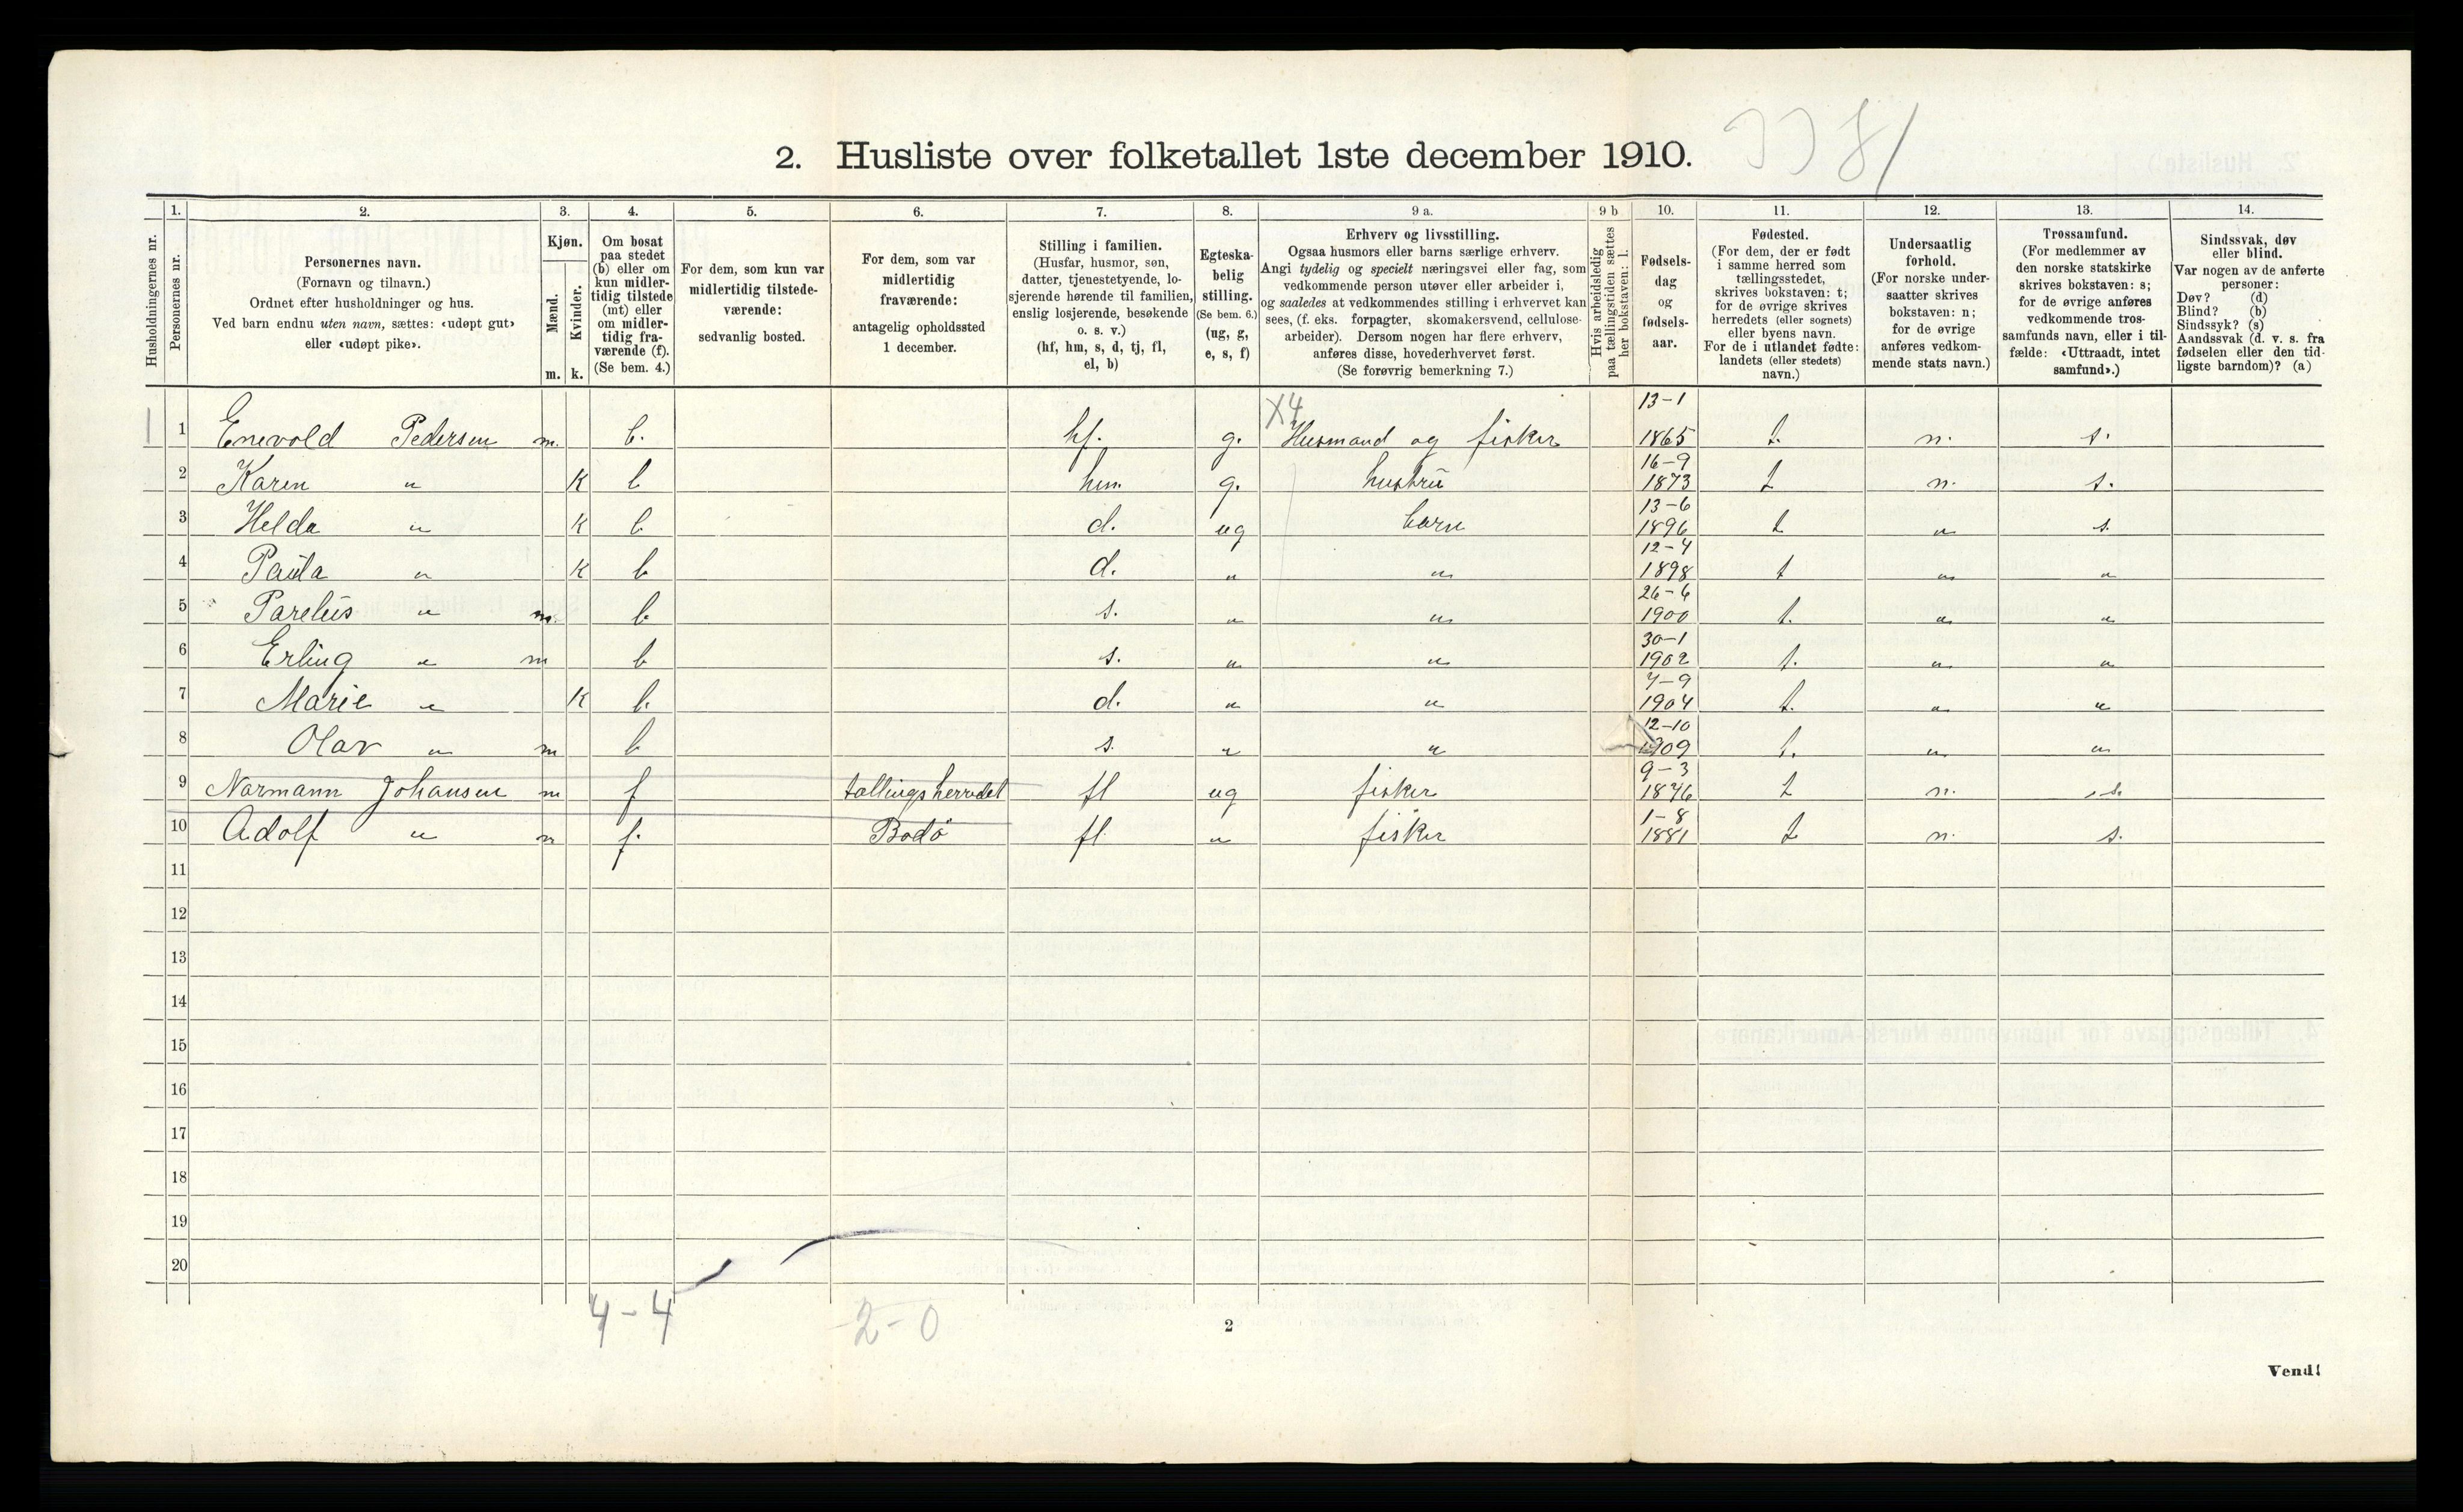 3381
2. Husliste over folketallet 1ste december 1910.
Husholdningernes nr.
1. Personernes nr.
2. Personernes navn.
(Fornavn og tilnavn.)
Ordnet efter husholdninger og hus.
Ved barn endnu uten navn, sættes: «udøpt gut»
eller «udøpt pike».
3. Kjøn.
Mænd. m.
Kvinder. k.
4. Om bosat
paa stedet
(b) eller om
kun midler-
tidig tilstede
(mt) eller
om midler-
tidig fra-
værende (f).
(Se bem. 4.)
5. For dem, som kun var
midlertidig tilstede-
værende:
sedvanlig bosted.
6. For dem, som var
midlertidig
fraværende:
antagelig opholdssted
1 december.
7. Stilling i familien.
(Husfar, husmor, søn,
datter, tjenestetyende, lo-
sjerende hørende til familien,
enslig losjerende, besøkende
o. s. v.)
(hf, hm, s, d, tj, fl,
el, b)
8. Egteska-
belig
stilling.
(Se bem. 6.)
(ug, g,
e, s, f)
9 a. Erhverv og livsstilling.
Ogsaa husmors eller barns særlige erhverv.
Angi tydelig og specielt næringsvei eller fag, som
vedkommende person utøver eller arbeider i,
og saaledes at vedkommendes stilling i erhvervet kan
sees, (f. eks. forpagter, skomakersvend, cellulose-
arbeider). Dersom nogen har flere erhverv,
anføres disse, hovederhvervet først.
(Se forøvrig bemerkning 7.)
9 b Hvis arbeidsledig
paa tællingstiden sættes
her bokstaven: l.
10. Fødsels-
dag
og
fødsels-
aar.
11. Fødested.
(For dem, der er født
i samme herred som
tællingsstedet,
skrives bokstaven: t;
for de øvrige skrives
herredets (eller sognets)
eller byens navn.
For de i utlandet fødte:
landets (eller stedets)
navn.)
12. Undersaatlig
forhold.
(For norske under-
saatter skrives
bokstaven: n;
for de øvrige
anføres vedkom-
mende stats navn.)
13. Trossamfund.
(For medlemmer av
den norske statskirke
skrives bokstaven: s;
for de øvrige anføres
vedkommende tros-
samfunds navn, eller i til-
fælde: «Uttraadt, intet
samfund».)
14. Sindssvak, døv
eller blind.
Var nogen av de anførte
personer:
Døv? (d)
Blind? (b)
Sindssyk? (s)
Aandssvak (d. v. s. fra
fødselen eller den tid-
ligste barndom)? (a)
X4
1 1 Enevold Pedersen m. b. hf. g. Husmand og fisker 13-1 1865 t. n. s.
2 Karen " K b hm. g. hustru 16-9 1873 t n. s.
3 Helda " K b d. ug barn 13-6 1896 t " s.
4 Paula " K b d. " " 12-4 1898 t " "
5 Parelius " m. b. s. " " 26-6 1900 t. " "
6 Erling " m b s. " " 30-1 1902 t. " "
7 Marie " K b. d. " " 7-9 1904 t. " "
8 Olav " m b s. " " 12-10 1909 t. " "
9 Normann Johansen m f tællingsherredet fl ug fisker 9-3 1876 t n. s.
10 Adolf " m f. Bodø fl " fisker 1-8 1881 t n. s.
11
12
13
14
15
16
17
18
19
20
4-4 2-0
2
Vend!